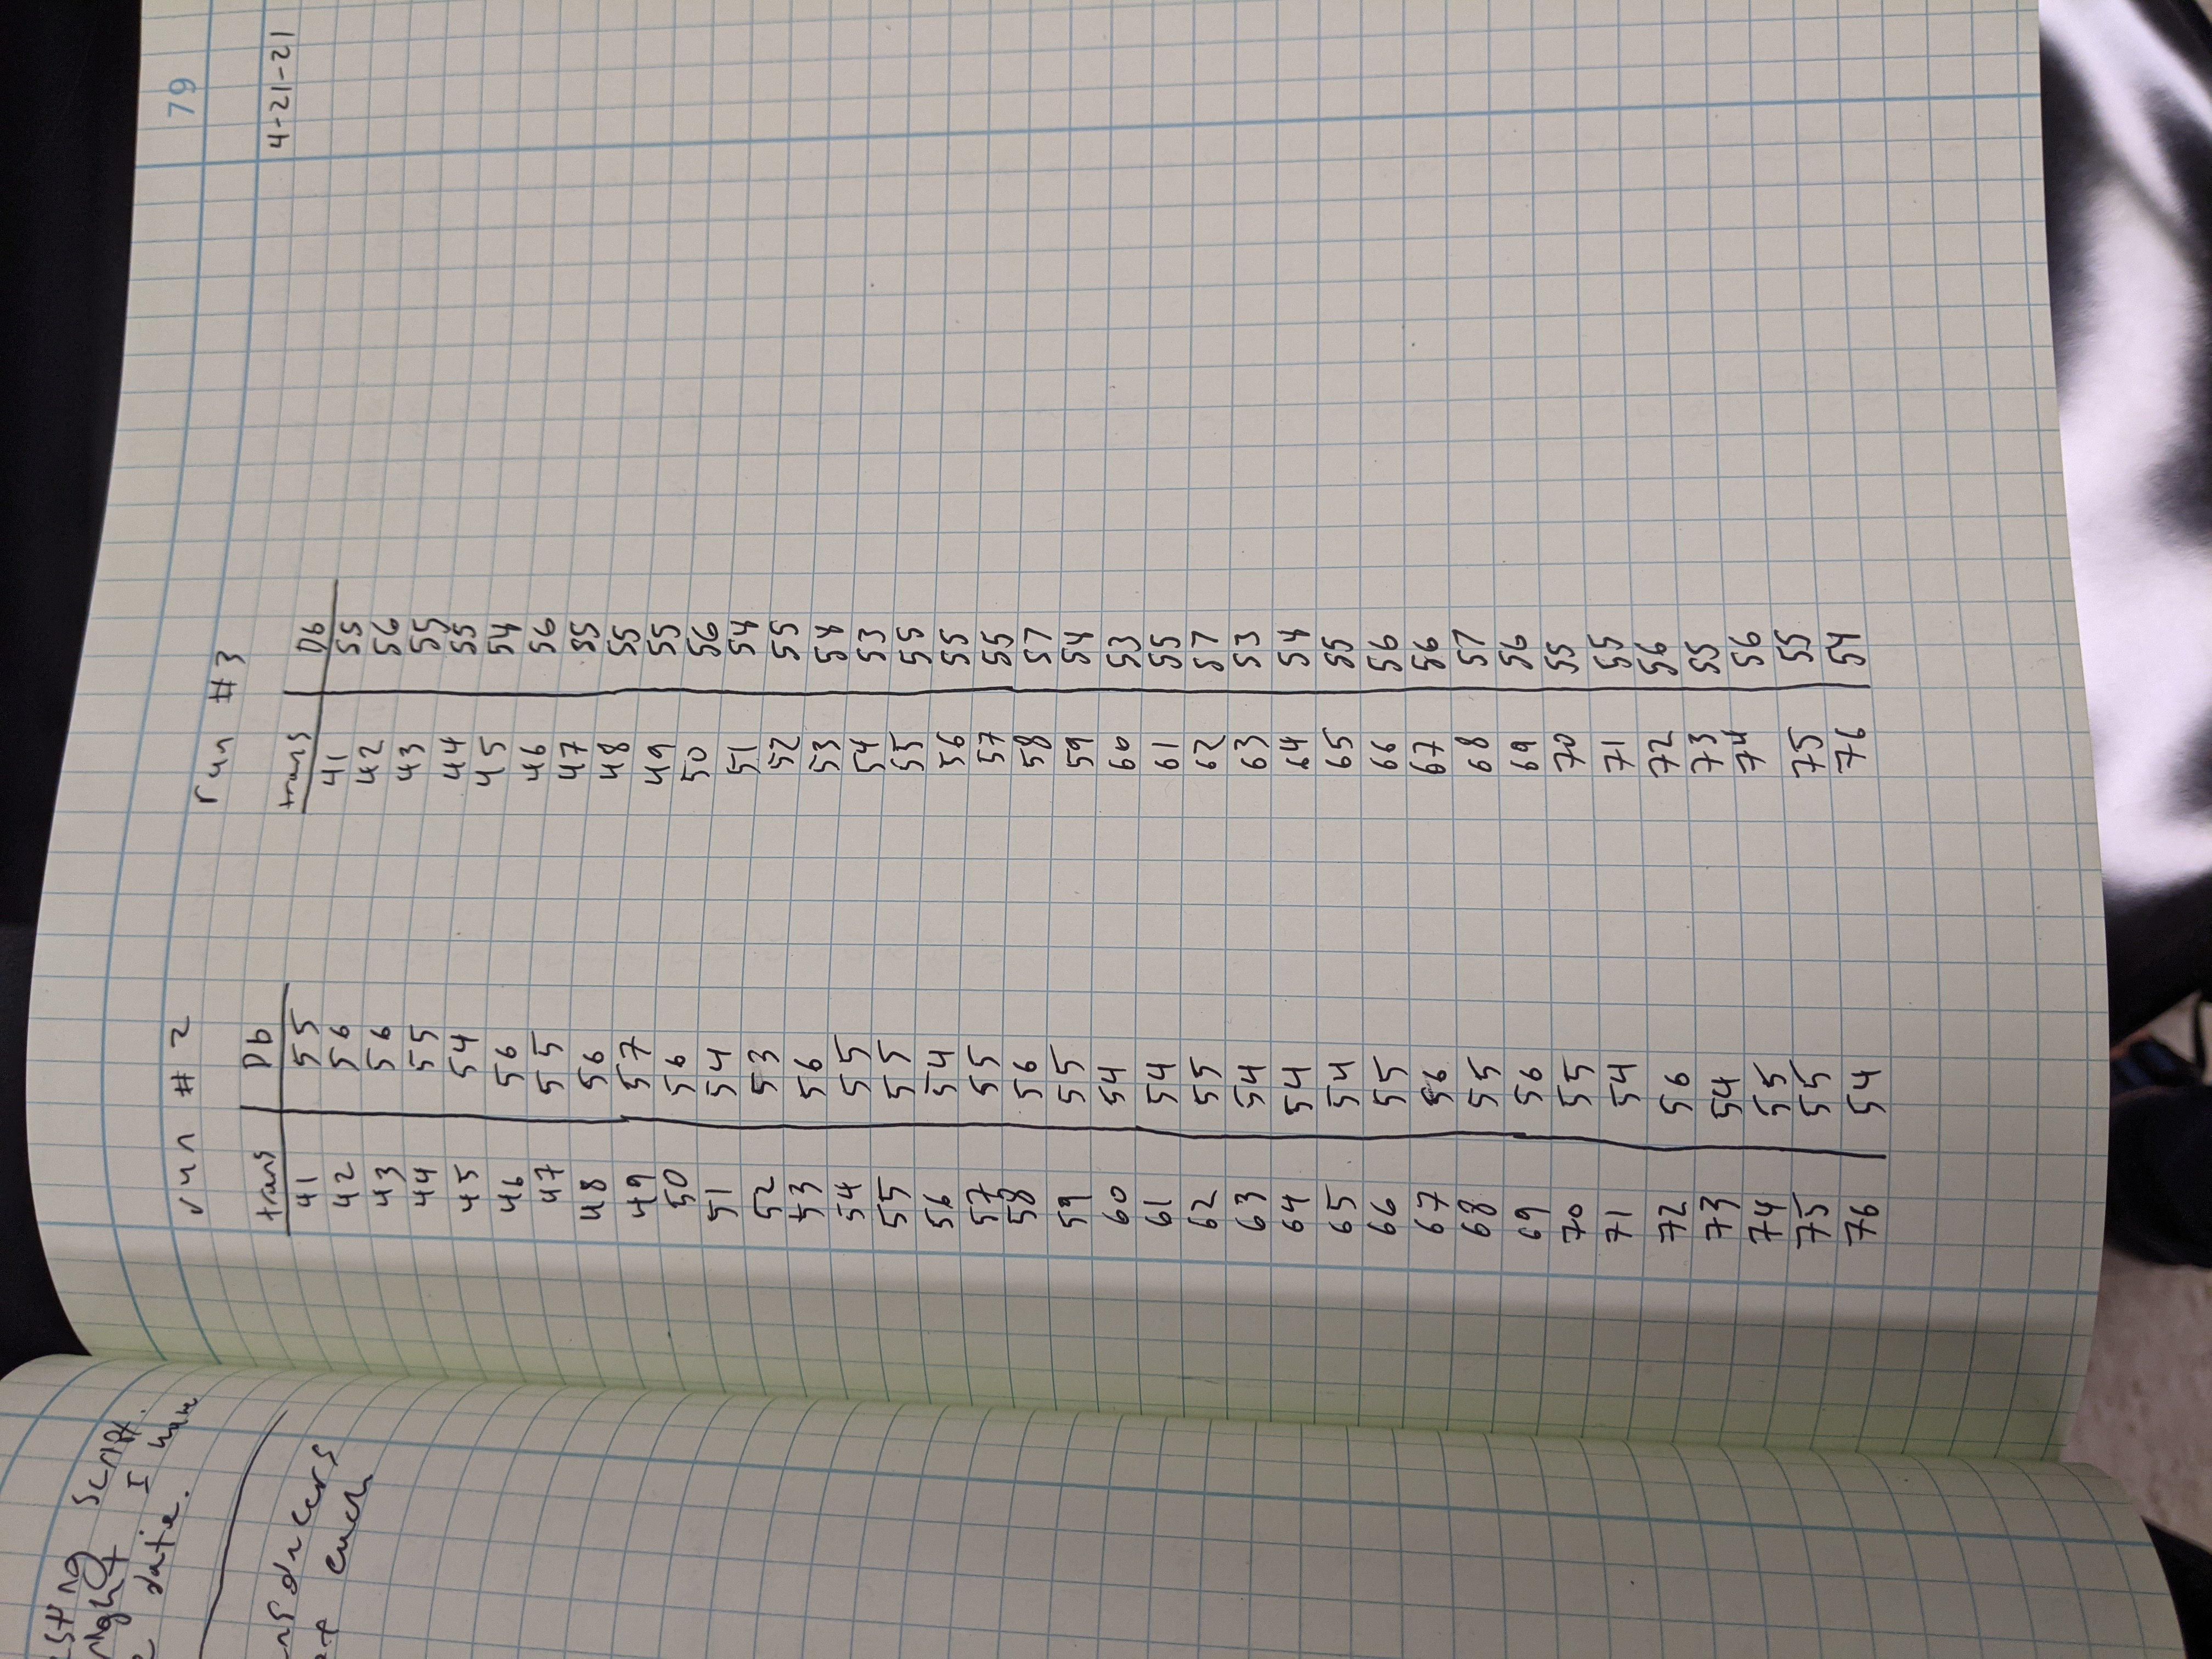 sting script.
right. I have
date.
ansducers
at each
79
4-21-21
run # 2
trans Db
41 55
42 56
43 56
44 55
45 54
46 56
47 55
48 56
49 57
50 56
51 54
52 53
53 56
54 55
55 55
56 54
57 55
58 56
59 55
60 54
61 54
62 55
63 54
64 54
65 54
66 55
67 56
68 55
69 56
70 55
71 54
72 56
73 54
74 55
75 55
76 54
run #3
trans Db
41 55
42 56
43 55
44 55
45 54
46 56
47 55
48 55
49 55
50 56
51 54
52 55
53 54
54 53
55 55
56 55
57 55
58 57
59 54
60 53
61 55
62 57
63 53
64 54
65 55
66 56
67 56
68 57
69 56
70 55
71 55
72 56
73 55
74 56
75 55
76 54